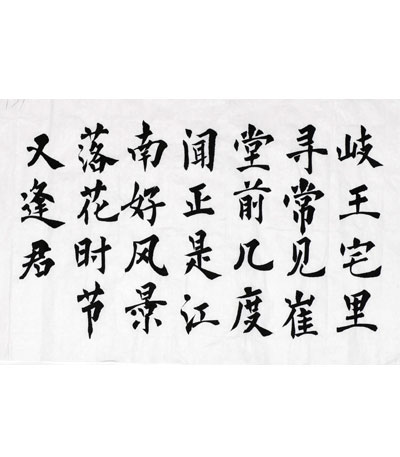 岐王宅里
寻常见崔
堂前几度
闻正是江
南好风景
落花时节
又逢君